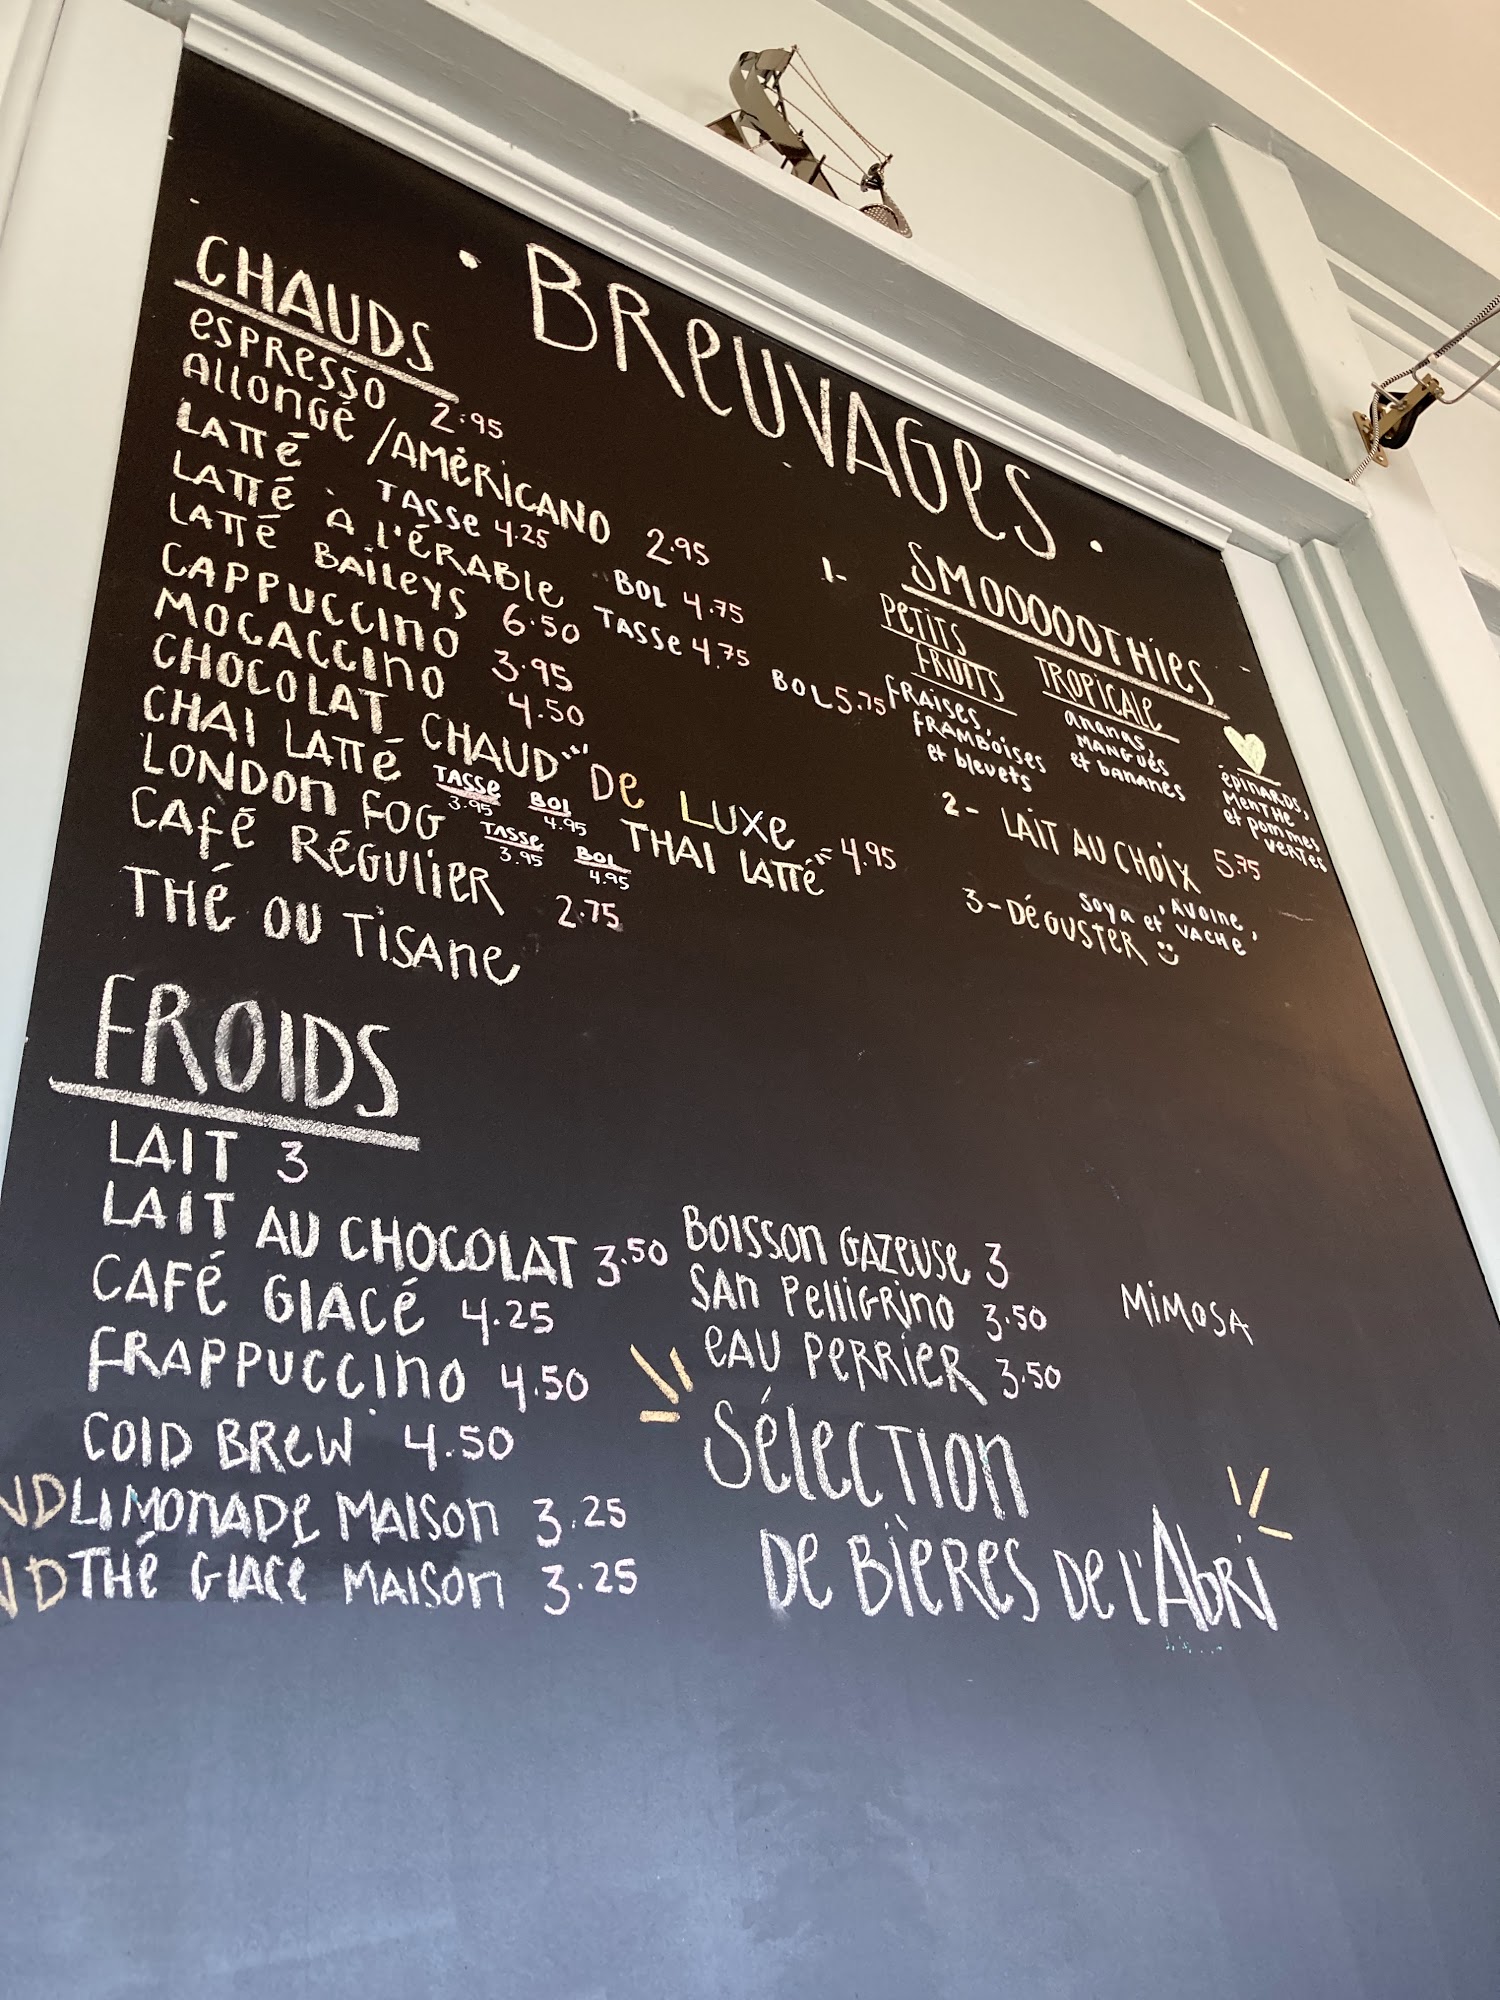 · BREUVAGES ·
CHAUDS
ESPRESSO 2.95
ALLONGÉ /AMÉRICANO 2.95
LATTÉ TASSE 4.25 BOL 4.75
LATTÉ À L'ÉRABLE TASSE 4.75 BOL 5.75
LATTÉ BAILEYS 6.50
CAPPUCCINO 3.95
MOCACCINO 4.50
CHOCOLAT CHAUD "DE LUXE" 4.95
CHAI LATTÉ TASSE 3.95 BOL 4.95 THAI LATTÉ
LONDON FOG TASSE 3.95 BOL 4.95
CAFÉ RÉGULIER 2.75
THÉ OU TISANE
SMOOOOOTHIES
1-
PETITS
FRUITS
FRAISES,
FRAMBOISES
et bleuets
TROPICALE
ananas,
MANGUES
et bananes
ÉPINARDS,
MENTHE
et pommes
VERTES
2- LAIT AU CHOIX 5.75
AVOINE,
SOYA et VACHE
3- DÉGUSTER
FROIDS
LAIT 3
LAIT AU CHOCOLAT 3.50
CAFÉ GLACÉ 4.25
FRAPPUCCINO 4.50
COLD BREW 4.50
ND LIMONADE MAISON 3.25
ND THÉ GLACÉ MAISON 3.25
BOISSON GAZEUSE 3
SAN PELLIGRINO 3.50
EAU PERRIER 3.50
MIMOSA
SÉLECTION
DE BIÈRES DE L'ABRI